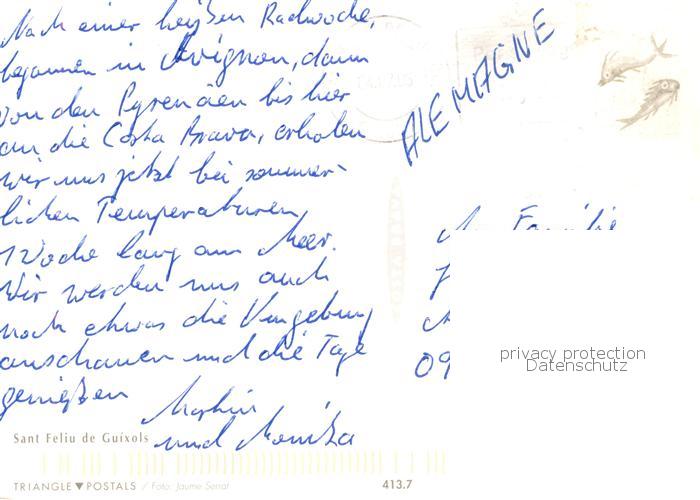 Nach einer heißen Radwoche,
begonnen in Avignon, dann
von den Pyrenäen bis hier
an die Costa Brava, erholen
wir uns jetzt bei sommer-
lichen Temperaturen
1 Woche lang am Meer.
Wir werden uns auch
noch etwas die Umgebung
anschauen und die Tage
genießen
Martin
und Monika
ALEMAGNE
An Familie
09
privacy protection
Datenschutz
Sant Feliu de Guíxols
TRIANGLE ▼ POSTALS / Foto: Jaume Serrat
413.7